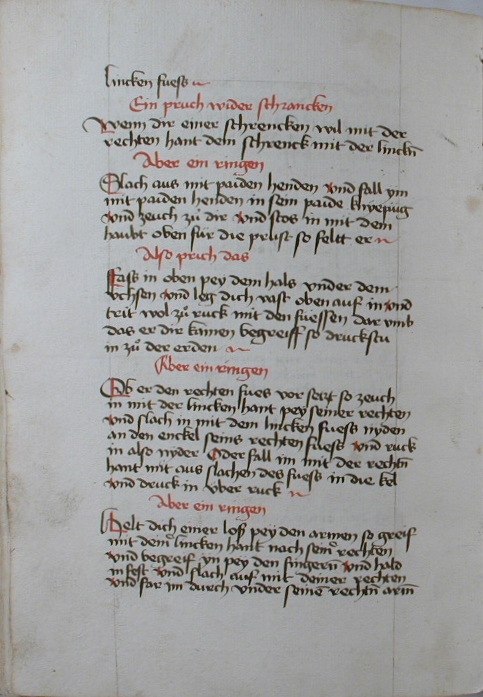 lincken fuess
Ein pruch wider schrancken
Wenn dir einer schrencken wil mit der
rechten hant dem schrenck mit der linckn̄
Aber ein ringen
Slach aus mit paiden henden Vnd fall ym
mit paiden henden in sein paide knyepüg
Vnd zeuch zů dir Vnd stos in mit dem
haubt oben für die prust so feltt er
Also prich das
Fass in oben pey dem hals vnder dem
vchsen Vnd leg dich vast oben auf in Vnd
trit wol zů ruck mit den fuessen dar vmb
das er dir kainen begreiff so druckstu
in zů der erden
Aber ein ringen
Ob er den rechten fues vor setzt so zeuch
in mit der lincken hant pey seiner rechten
Vnd slach in mit dem lincken fuess nyden
an den enckel seins rechten fuess Vnd ruck
in also nyder Oder fall im mit der rechtn̄
hant mit aus slachen des fuess in die kel
Vnd druck in vber ruck
Aber ein ringen
Helt dich einer loss pey den armen so greif
mit dein̄ lincken hant nach sein̄ rechten
Vnd begreif yn pey den fingern Vnd hald
in fest Vnd slach auf mit deiner rechten
Vnd far im durch vnder seinē rechtn̄ arm